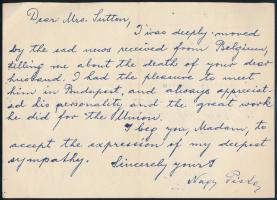 Dear Mrs. Sutton,
I was deeply moved
by the sad news received from Belgium,
telling me about the death of your dear
husband. I had the pleasure to meet
him in Budapest, and always appreciat-
ed his personality and the great work
he did for the Union.
I beg you, Madam, to
accept the expression of my deepest
sympathy. Sincerely yours
Nagy